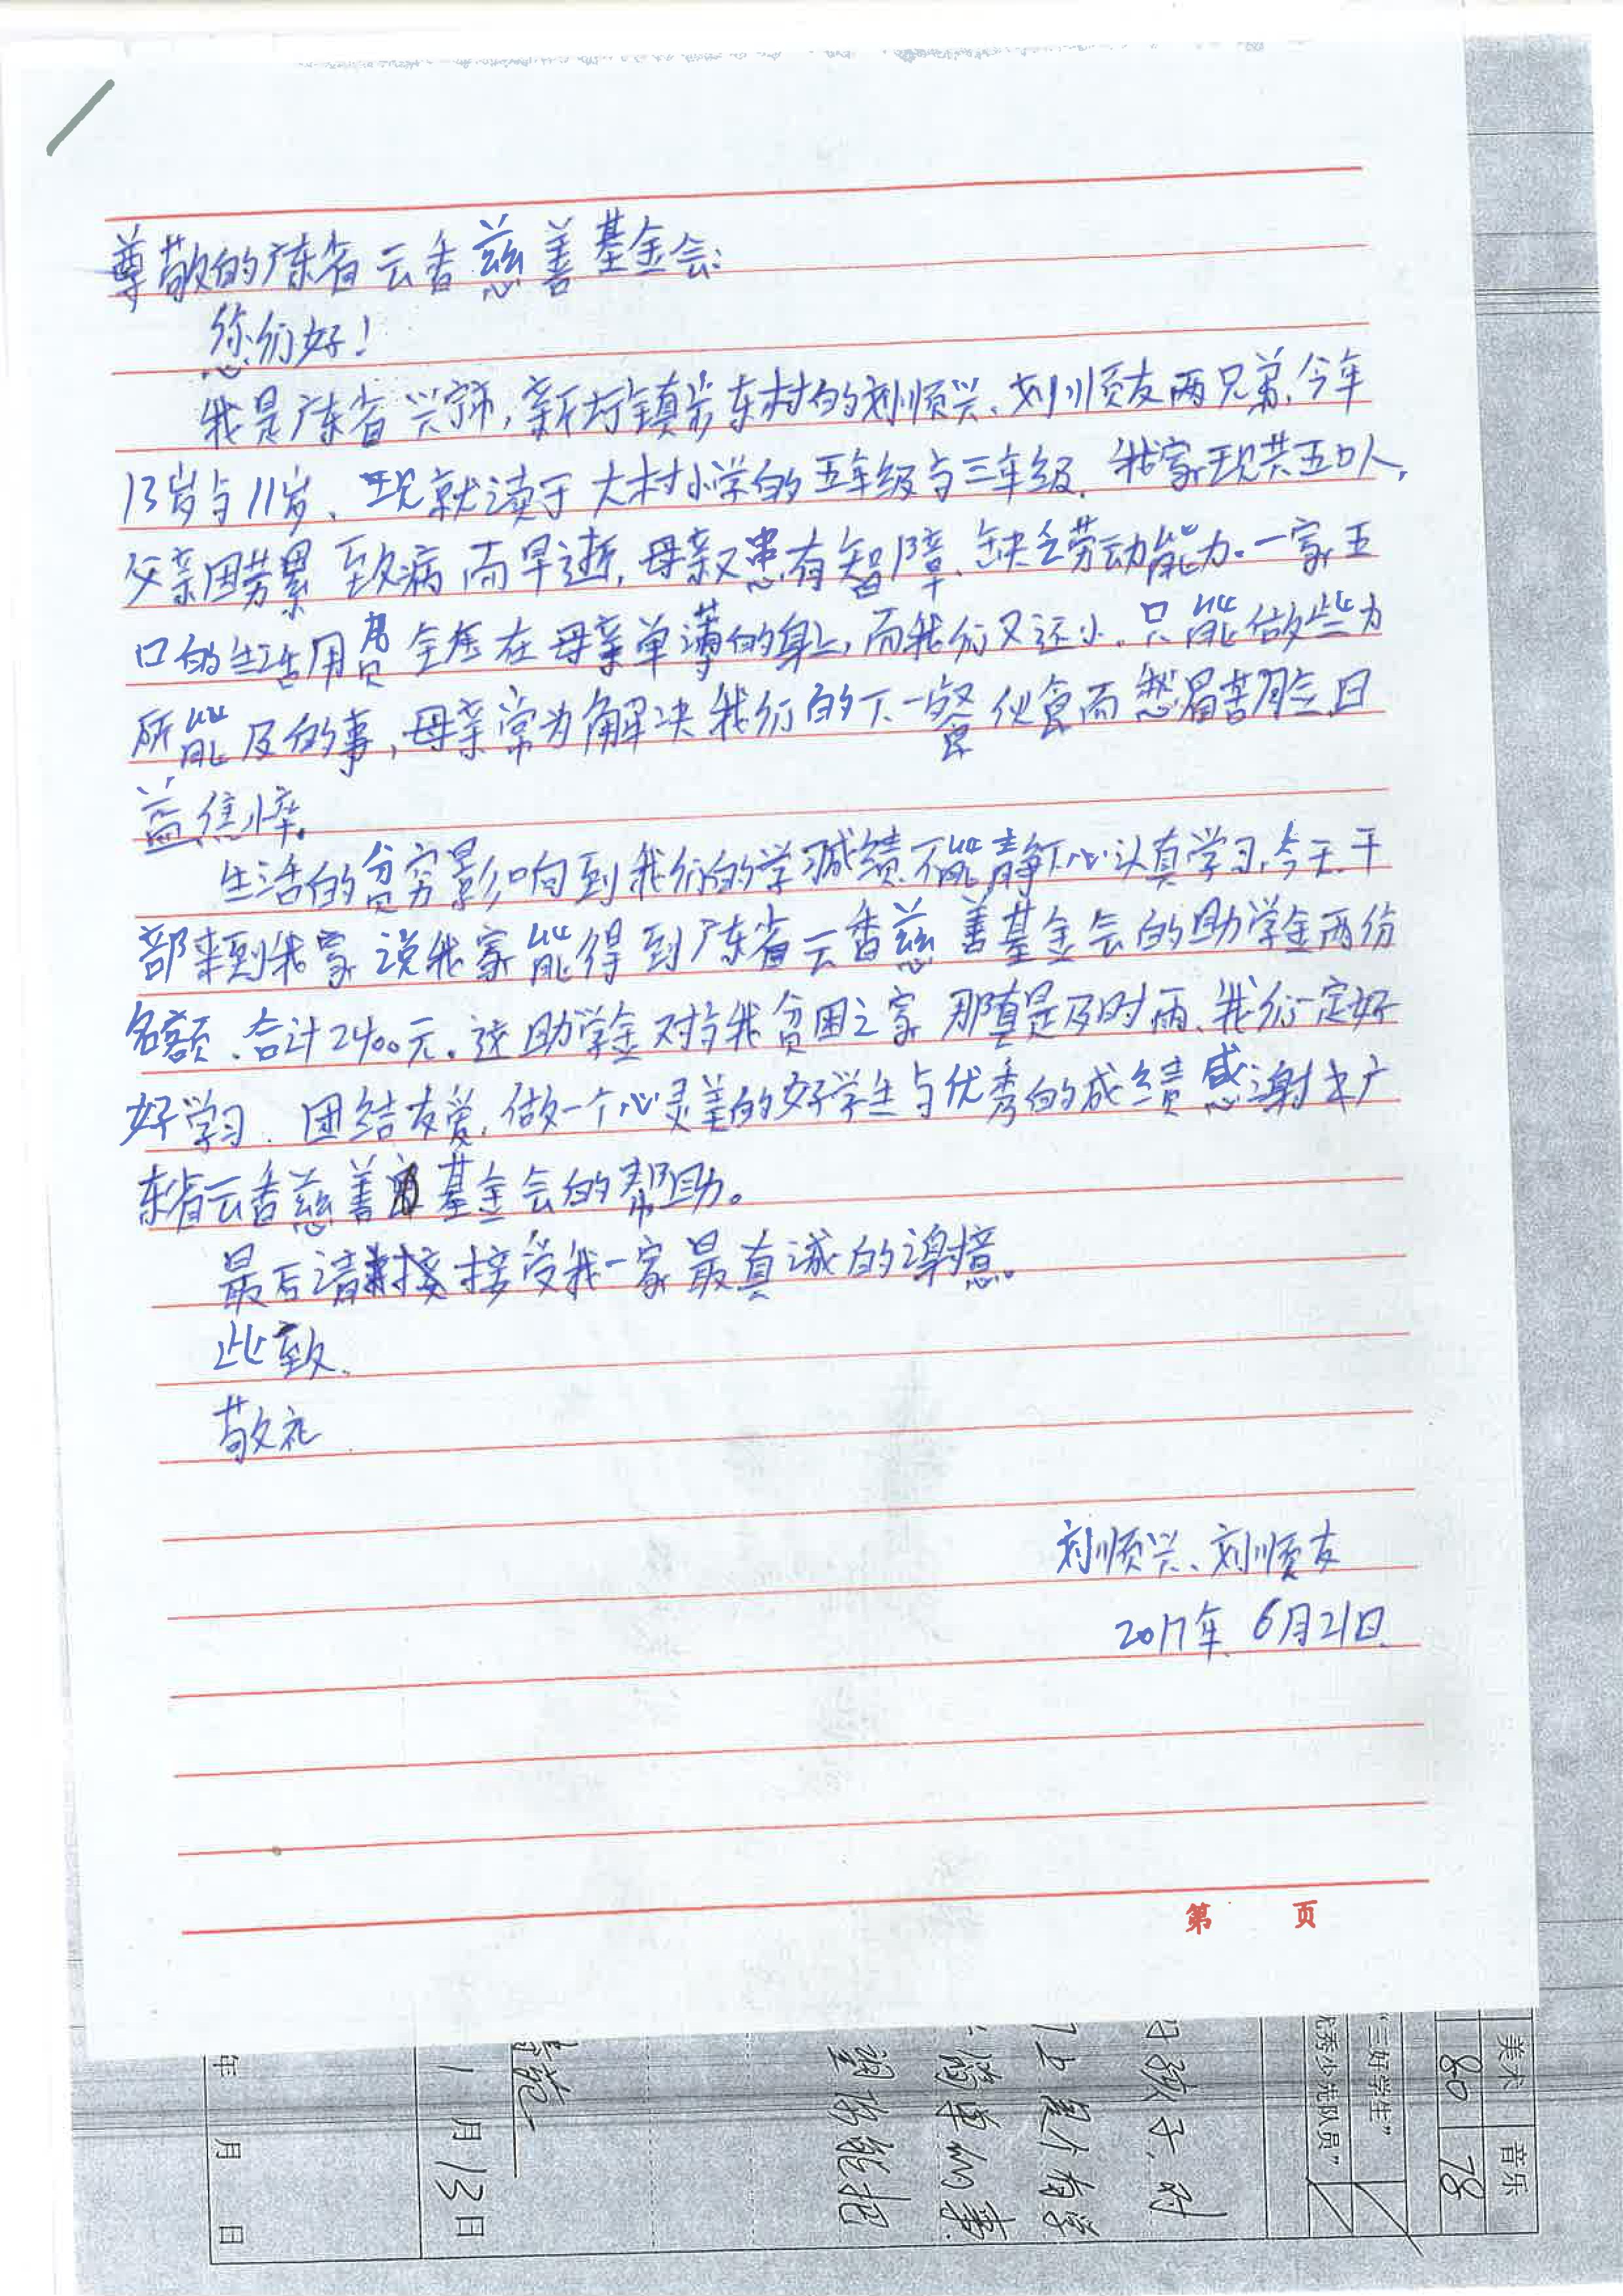 尊敬的广东省云香慈善基金会:
您们好!
我是广东省兴宁市,新圩镇 东村的刘顺兴、刘顺友两兄弟,今年
13岁与11岁、现就读于大村小学的五年级与三年级.我家现共五口人,
父亲因劳累致病而早逝,母亲又患有智障、缺乏劳动能力.一家五
口的生活用费全压在母亲单薄的身上,而我们又还小.只能做些力
所能及的事,母亲常为解决我们的下一餐伙食而愁眉苦脸,日
益憔悴.
生活的贫穷影响到我们的学习成绩.不能静下心认真学习,今天.干
部来到我家说我家能得到广东省云香慈善基金会的助学金两份
名额、合计2400元。这助学金对于我贫困之家那真是及时雨、我们一定好
好学习.团结友爱,做一个心灵美的好学生与优秀的成绩感谢 广
东省云香慈善基金会的帮助。
最后请接受我一家最真诚的谢意。
此致.
敬礼
刘顺兴、刘顺友
2017年 6月21日
第 页
美术 80 音乐 78
"三好学生"
优秀少先队员"
孩子,对
上是个有学
简单的事
能把
1月13日
年 月 日